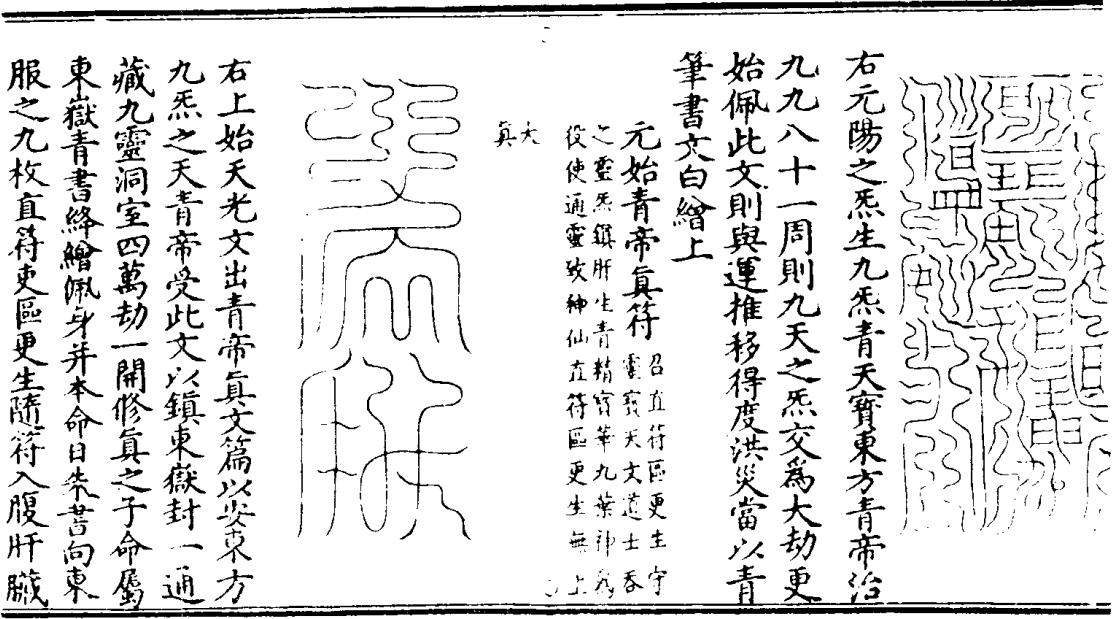 右元陽之炁生九炁青天寶東方青帝治
九九八十一周則九天之炁交爲大劫更
始佩此文則與運推移得度洪災當以青
筆書文白繒上
元始青帝眞符
召直符區更生守
靈寶天文道士吞
之靈炁鎮肝生青精寶華九葉神
役使通靈致神仙直符區更生無上
大
眞
右上始天光文出青帝眞文篇以安東方
九炁之天青帝受此文以鎮東嶽封一通
藏九靈洞室四萬劫一開修眞之子命屬
東嶽青書絳繒佩身并本命日朱書向東
服之九枚直符吏區更生隨符入腹肝臟